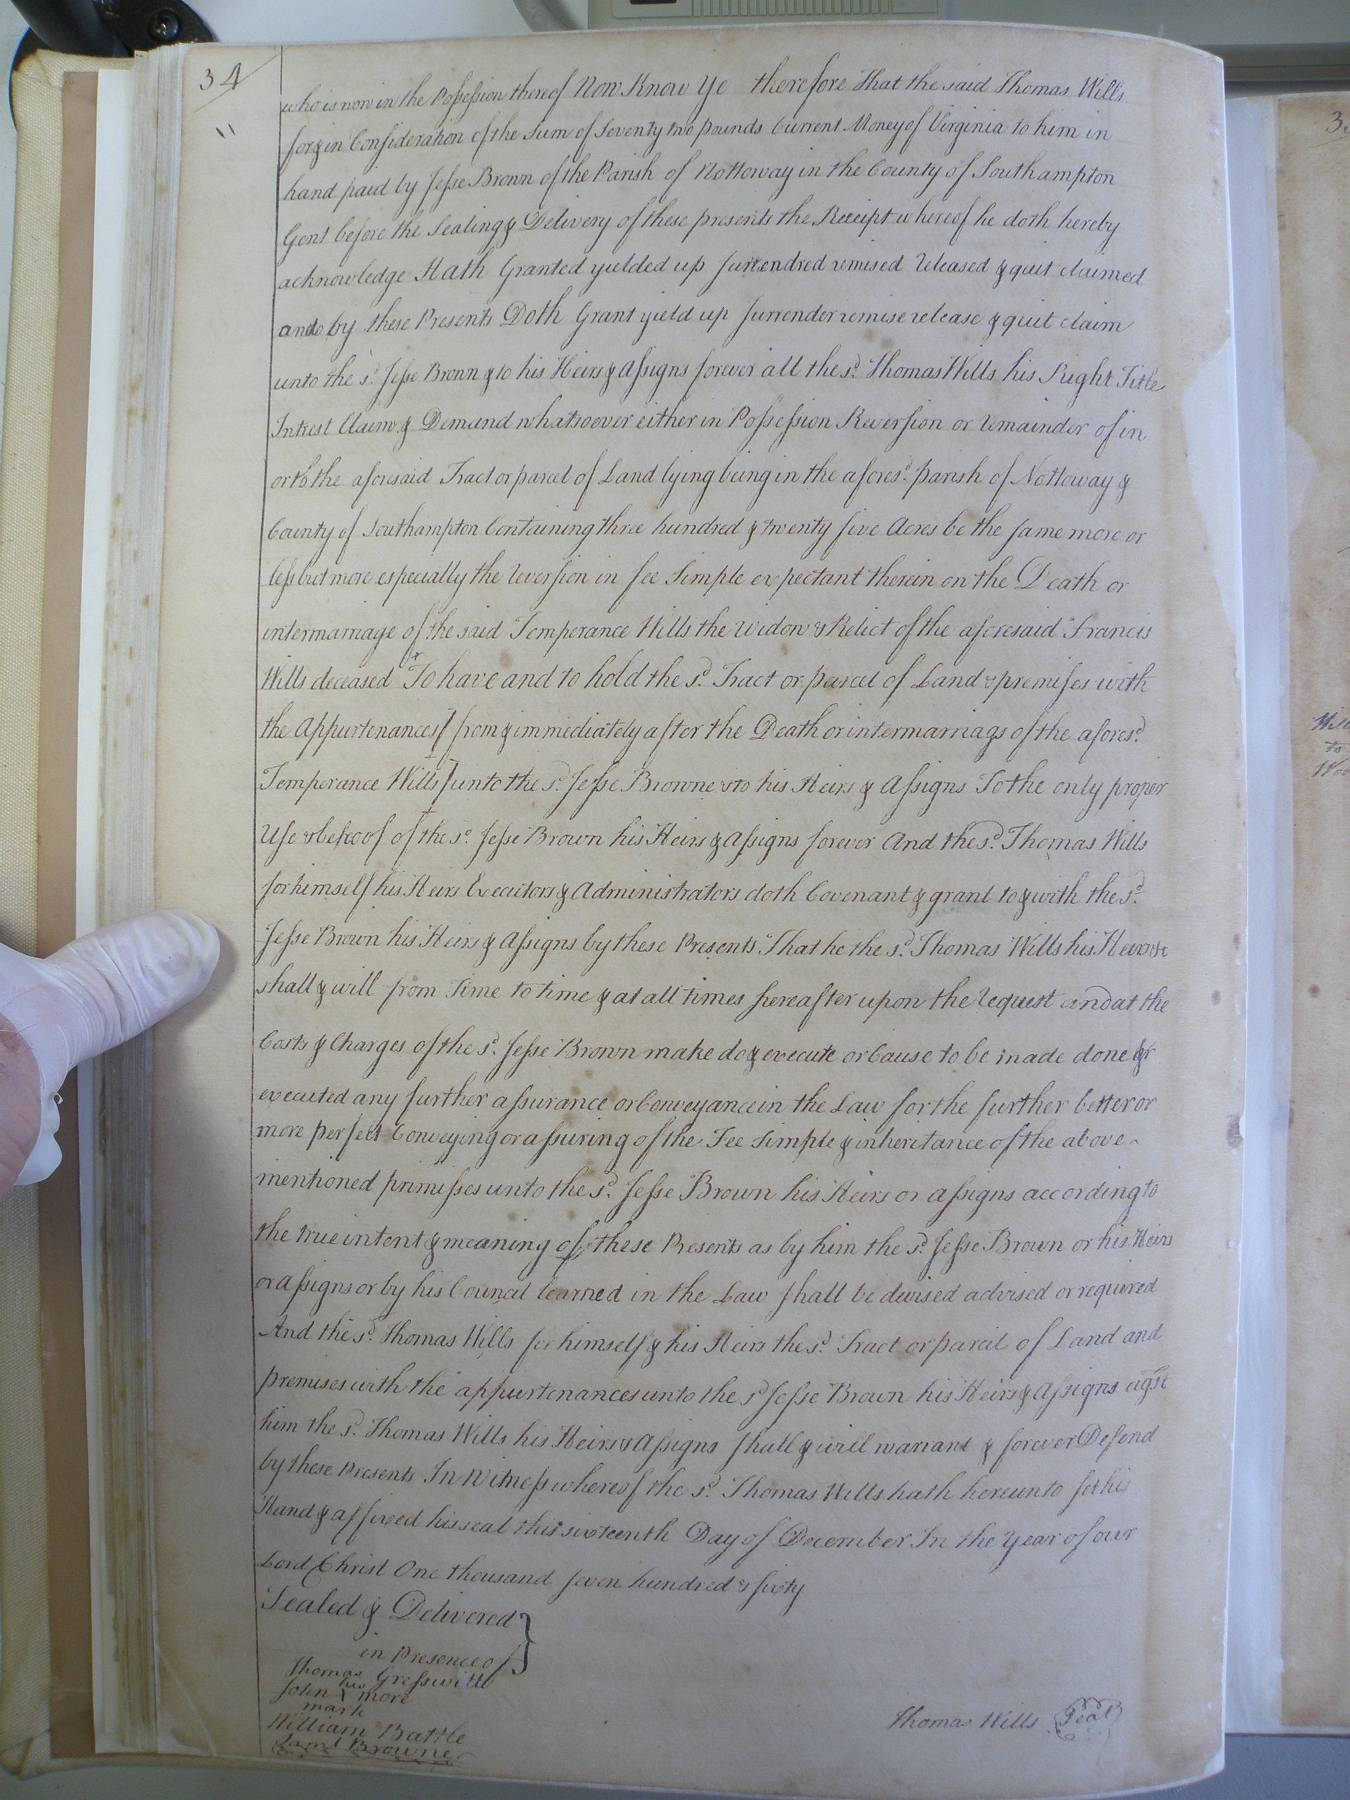 34
who is now in the Possession thereof Now Know Ye therefore That the said Thomas Wills
for & in Consideration of the Sum of Seventy two pounds Current Money of Virginia to him in
hand paid by Jesse Brown of the Parish of Nottoway in the County of Southampton
Gent before the Sealing & Delivery of these presents the Receipt whereof he doth hereby
acknowledge Hath Granted yielded up Surrendred remised released & quit claimed
and by these Presents Doth Grant yield up Surrender remise release & quit claim
unto the sd. Jesse Brown & to his Heirs & Assigns forever all the sd. Thomas Wills his Right Title
Intrest Claim & Demand whatsoever either in Possession Reversion or remainder of in
or to the aforesaid Tract or parcel of Land lying being in the aforesd. parish of Nottoway &
County of Southampton Containing three hundred & twenty five Acres be the same more or
less but more especially the reversion in fee Simple expectant therein on the Death or
intermarriage of the said Temperance Wills the Widow & Relict of the aforesaid Francis
Wills deceased To have and to hold the sd. Tract or parcel of Land & premises with
the Appurtenances from & immediately after the Death or intermarriage of the aforesd.
Temperance Wills unto the sd. Jesse Browne & to his Heirs & Assigns To the only proper
Use & behoof of the sd. Jesse Brown his Heirs & Assigns forever And the sd. Thomas Wills
for himself his Heirs Executors & Administrators doth Covenant & grant to & with the sd.
Jesse Brown his Heirs & Assigns by these Presents That he the sd. Thomas Wills his Heirs &c
shall & will from Time to time & at all times hereafter upon the request and at the
Costs & Charges of the sd. Jesse Brown make do & execute or Cause to be made done &
executed any further assurance or Conveyance in the Law for the further better or
more perfect Conveying or assuring of the Fee Simple & inheritance of the above
mentioned primisses unto the sd. Jesse Brown his Heirs or assigns according to
the true intent & meaning of these Presents as by him the sd. Jesse Brown or his Heirs
or assigns or by his Council learned in the Law shall be devised advised or required
And the sd. Thomas Wills for himself & his Heirs the sd. Tract or parcel of Land and
premises with the appurtenances unto the sd Jesse Brown his Heirs & Assigns agst
him the sd. Thomas Wills his Heirs & Assigns shall & will warrant & forever Defend
by these Presents In Witness whereof the sd. Thomas Wills hath hereunto set his
Hand & affixed his seal this sixteenth Day of December In the Year of our
Lord Christ One thousand seven hundred & sixty
Sealed & Delivered
in Presence of
Thomas Gresswitt
his
John X more
mark
William Battle
Saml Browne
Thomas Wills Seal